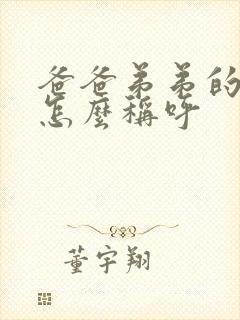 爸爸弟弟的
怎麼稱呼
董宇翔